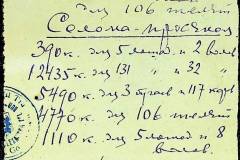 для 106 телят
Солома-просяная
390 к. для 5 лошад. и 2 волов
12435 к. для 131 " и 32 "
5490 к. для 3 буг. и 117 коров
4770 к. для 106 телят
1110 к. для 5 лошад и 8
волов.